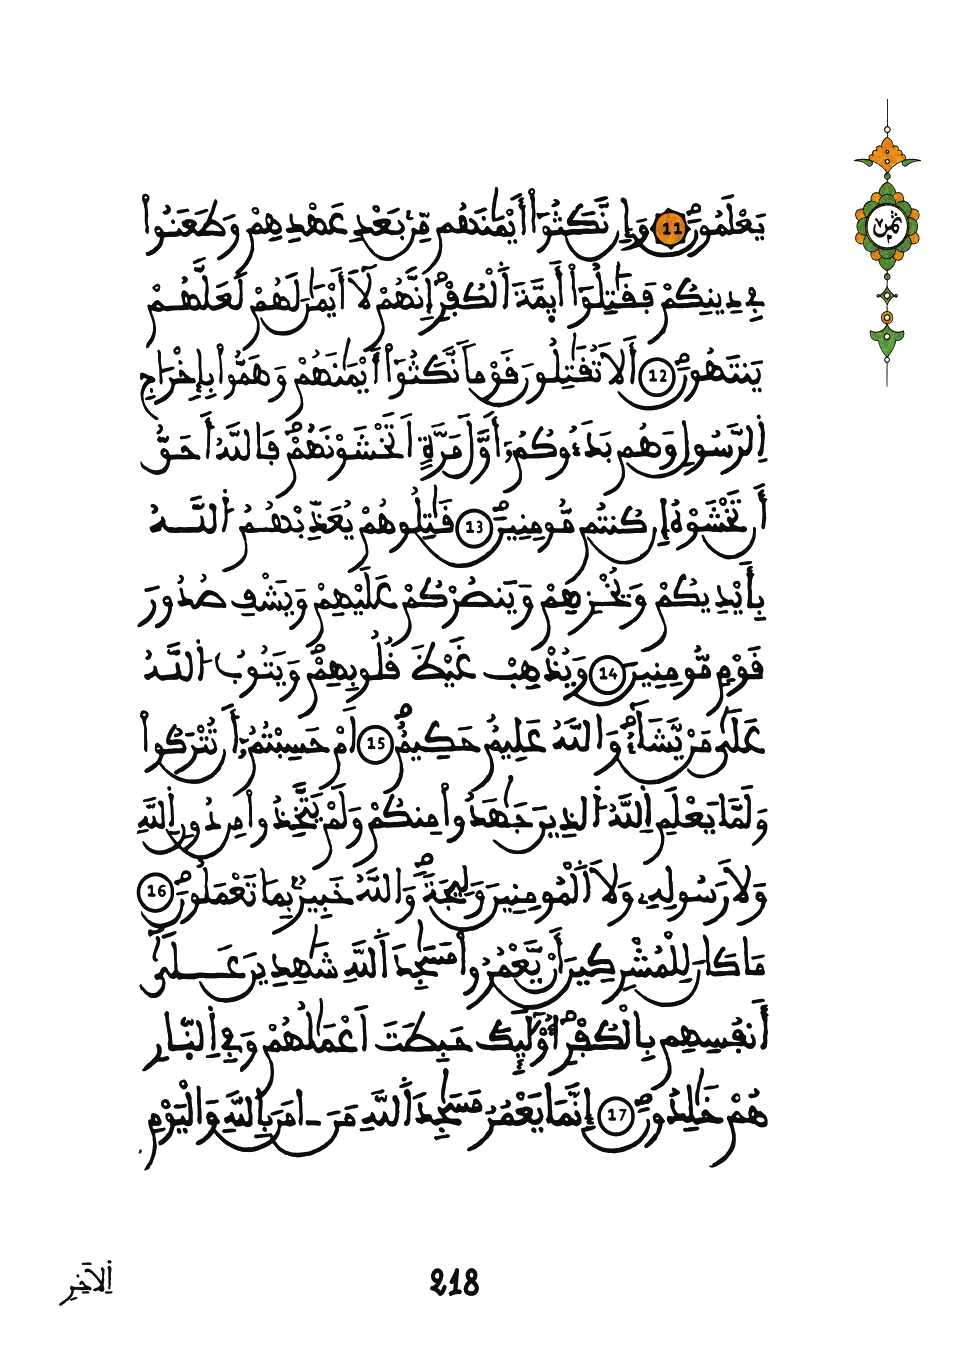 يَعْلَمُونَۖ 11 وَإِن نَّكَثُوٓاْ أَيْمَٰنَهُم مِّنۢ بَعْدِ عَهْدِهِمْ وَطَعَنُواْ
فِے دِينِكُمْ فَقَٰتِلُوٓاْ أَيِمَّةَ اَ۬لْكُفْرِ إِنَّهُمْ لَآ أَيْمَٰنَ لَهُمْ لَعَلَّهُمْ
يَنتَهُونَۖ 12 أَلَا تُقَٰتِلُونَ قَوْماٗ نَّكَثُوٓاْ أَيْمَٰنَهُمْ وَهَمُّواْ بِإِخْرَاجِ
اِ۬لرَّسُولِ وَهُم بَدَءُوكُمُۥٓ أَوَّلَ مَرَّةٍ اَتَخْشَوْنَهُمْۖ فَاللَّهُ أَحَقُّ
أَن تَخْشَوْهُ إِن كُنتُم مُّومِنِينَۖ 13 قَٰتِلُوهُمْ يُعَذِّبْهُمُ اُ۬للَّهُ
بِأَيْدِيكُمْ وَيُخْزِهِمْ وَيَنصُرْكُمْ عَلَيْهِمْ وَيَشْفِ صُدُورَ
قَوْمٖ مُّومِنِينَ 14 وَيُذْهِبْ غَيْظَ قُلُوبِهِمْۖ وَيَتُوبُ اُ۬للَّهُ
عَلَيٰ مَنْ يَّشَآءُۖ وَاللَّهُ عَلِيمٌ حَكِيمٌۖ 15 اَمْ حَسِبْتُمُۥٓ أَن تُتْرَكُواْ
وَلَمَّا يَعْلَمِ اِ۬للَّهُ اُ۬لذِينَ جَٰهَدُواْ مِنكُمْ وَلَمْ يَتَّخِذُواْ مِن دُونِ اِ۬للَّهِ
وَلَا رَسُولِهِۦ وَلَا اَ۬لْمُومِنِينَ وَلِيجَةٗۖ وَاللَّهُ خَبِيرُۢ بِمَا تَعْمَلُونَۖ 16
مَا كَانَ لِلْمُشْرِكِينَ أَنْ يَّعْمُرُواْ مَسَٰجِدَ اَ۬للَّهِ شَٰهِدِينَ عَلَيٰٓ
أَنفُسِهِم بِالْكُفْرِۖ أُوْلَٰٓئِكَ حَبِطَتَ اَعْمَٰلُهُمْ وَفِے اِ۬لنّ۪ارِ
هُمْ خَٰلِدُونَۖ 17 إِنَّمَا يَعْمُرُ مَسَٰجِدَ اَ۬للَّهِ مَنَ ـ امَنَ بِاللَّهِ وَالْيَوْمِ
ثمن
اِ۬لَاخِرِ
218